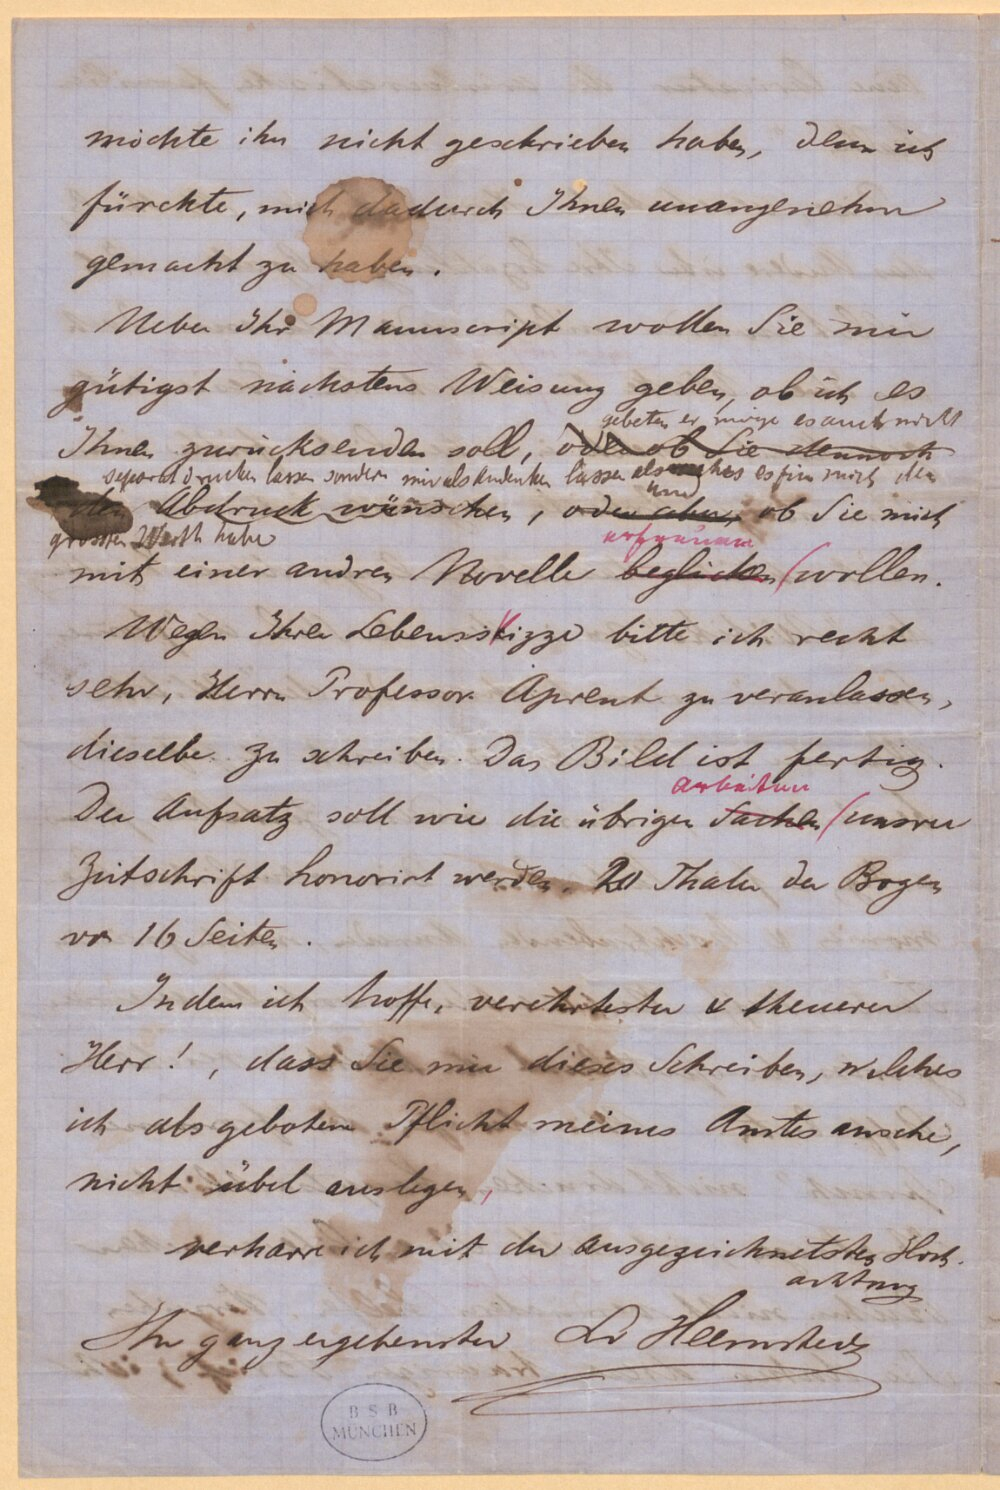 möchte ihn nicht geschrieben haben, denn ich
fürchte, mich dadurch Ihnen unangenehm
gemacht zu haben.
Ueber Ihr Manuscript wollen Sie mir
gütigst nächstens Weisung geben, ob ich es
gebeten er möge es auch nicht
Ihnen zurücksenden soll, oder ob Sie dennoch
separat drucken lassen sondern mir als Andenken lassen als welches es für mich den
und
den Abdruck wünschen, oder aber, ob Sie mich
grossten Werth habe
erfreuen
mit einer andren Novelle beglücken wollen.
Wegen Ihrer Lebensskizze bitte ich recht
sehr, Herrn Professor Aprent zu veranlassen,
dieselbe zu schreiben. Das Bild ist fertig.
Arbeiten
Der Aufsatz soll wie die übrigen Sachen unsrer
Zeitschrift honorirt werden. 20 Thaler der Bogen
von 16 Seiten.
Indem ich hoffe, verehrtester & theurer
Herr!, dass Sie mir dieses Schreiben, welches
ich als gebotene Pflicht meines Amtes ansehe,
nicht übel auslegen,
verharre ich mit der ausgezeichnetsten Hoch-
achtung
Ihr ganz ergebenster
BSB
MÜNCHEN